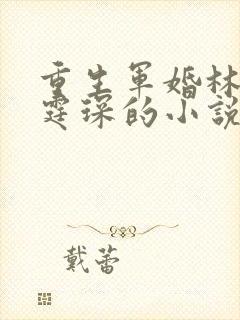 重生軍婚林
霆琛的小說
戴蕾